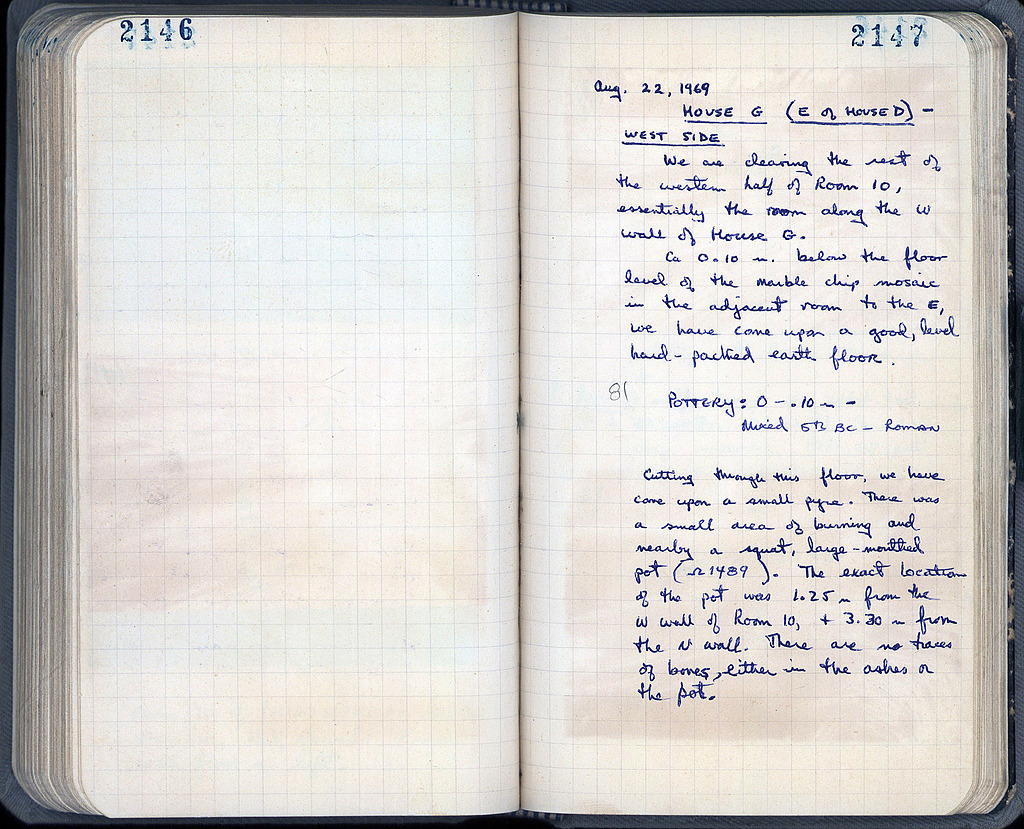 2146
2147
Aug. 22, 1969
HOUSE G (E of HOUSE D) -
WEST SIDE
We are clearing the rest of
the western half of Room 10,
essentially the room along the W
wall of House G.
Ca 0.10 m. below the floor
level of the marble chip mosaic
in the adjacent room to the E,
we have come upon a good, level
hard-packed earth floor.
81
POTTERY: 0 - .10 m -
Mixed 5th BC - ROMAN
Cutting through this floor, we have
come upon a small pyre. There was
a small area of burning and
nearby a squat, large-mouthed
pot (Ω1489). The exact location
of the pot was 1.25 m from the
W wall of Room 10, + 3.30 m from
the N wall. There are no traces
of bones, either in the ashes or
the pot.